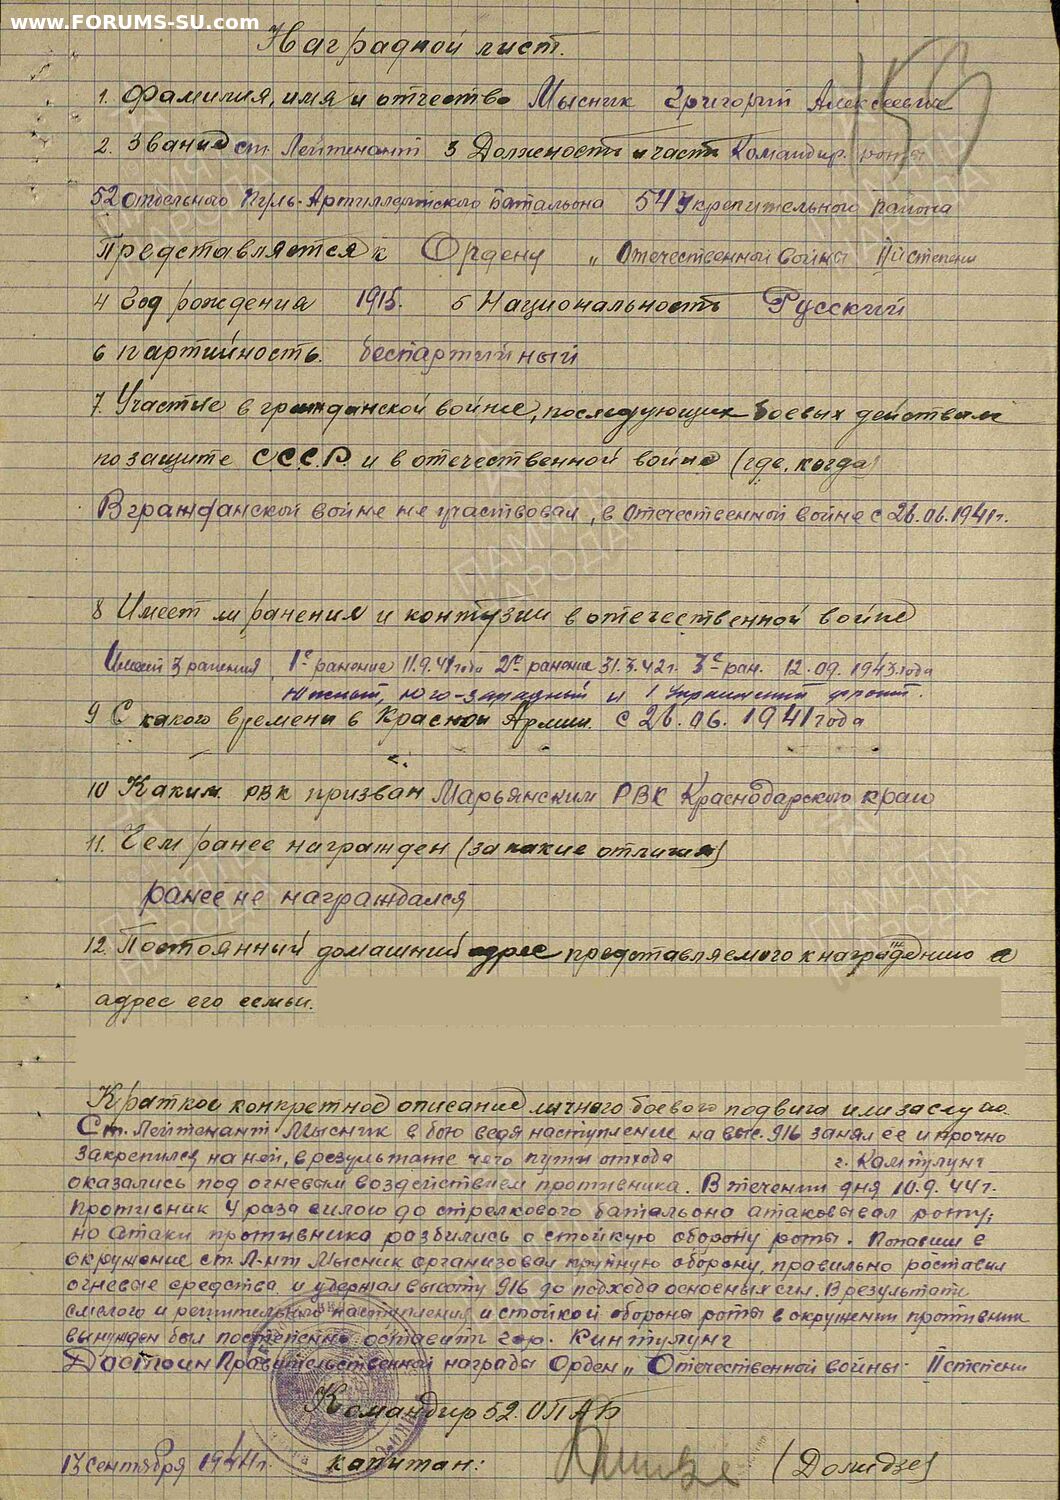 www.FORUMS-SU.com
Наградной лист.
1. Фамилия, имя и отчество Мысник Григорий Алексеевич
2. Звание ст. Лейтенант 3 Должность и часть Командир роты
52 отдельного Пуль-Артиллерийского Батальона 54 Укрепительного Района
Представляется к Ордену „Отечественной войны II степени
4 Год рождения 1915. 5 Национальность Русский
6 партийность. беспартийный
7. Участие в гражданской войне, последующих боевых действам
по защите С.С.С.Р. и в отечественной войне (где, когда)
В гражданской войне не участвовал, в Отечественной войне с 26.06.1941г.
8 Имеет ли ранения и контузии в отечественной войне
Имеет 3 ранения, 1е ранение 11.9.41 года 2е ранение 31.3.42г. 3е ран. 12.09.1943 года
Южный, Юго-Западный и 1 Украинский фронт.
9 С какого времени в Красной Армии. с 26.06.1941 года
10 Каким РВК призван Марьянским РВК Краснодарского краю
11. Чем ранее награжден (за какие отличия)
ранее не награждался
12. Постоянный домашний адрес представляемого к награждению и
адрес его семьи.
Краткое конкретное описание личного боевого подвига или заслуг
Ст. Лейтенант Мысник в бою ведя наступление на выс. 916 занял ее и прочно
закрепился на ней, в результате чего пути отхода г. Кампулунг
оказались под огневам воздействием противника. В течении дня 10.9.44г.
Противник 4 раза силою до стрелкового батальона атаковывал роту,
но атаки противника разбились о стойкую оборону роты. Попавши в
окружение ст. Л-нт Мысник организовал круговую оборону, правильно роставил
огневые средства и удержал высоту 916 до подхода основных сил. В результати
смелого и решительного наступления и стойкой оборона роты в окружении противник
вынужден был постепенно оставить гор. Кинтулунг
Достоин Правительственной награды Орден „Отечественной войны II степени
Командир 52. ОПАБ
13 сентября 1944г. капитан: (Долидзе)
ПАМЯТЬ НАРОДА